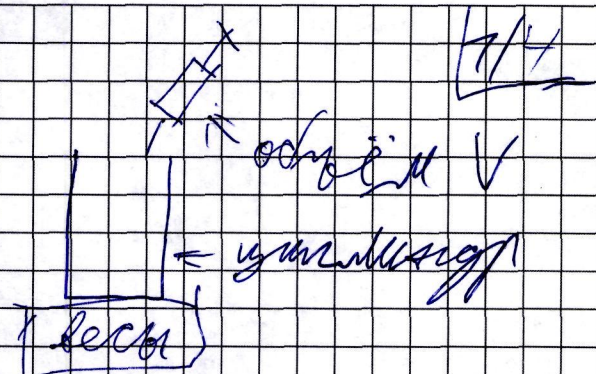 1/4
объём V
цилиндр
весы